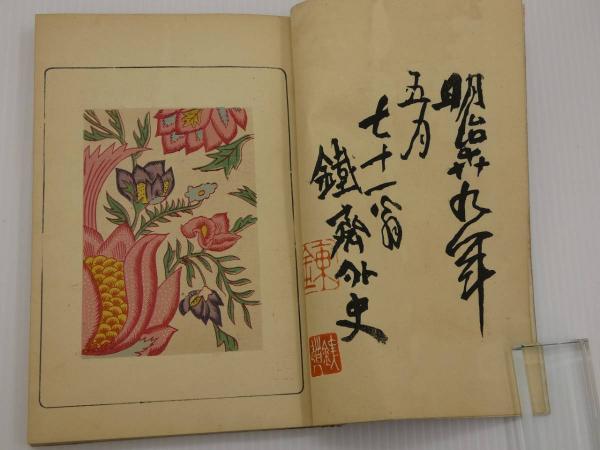 明治卅九年
五月
七十一翁
鐵齋外史